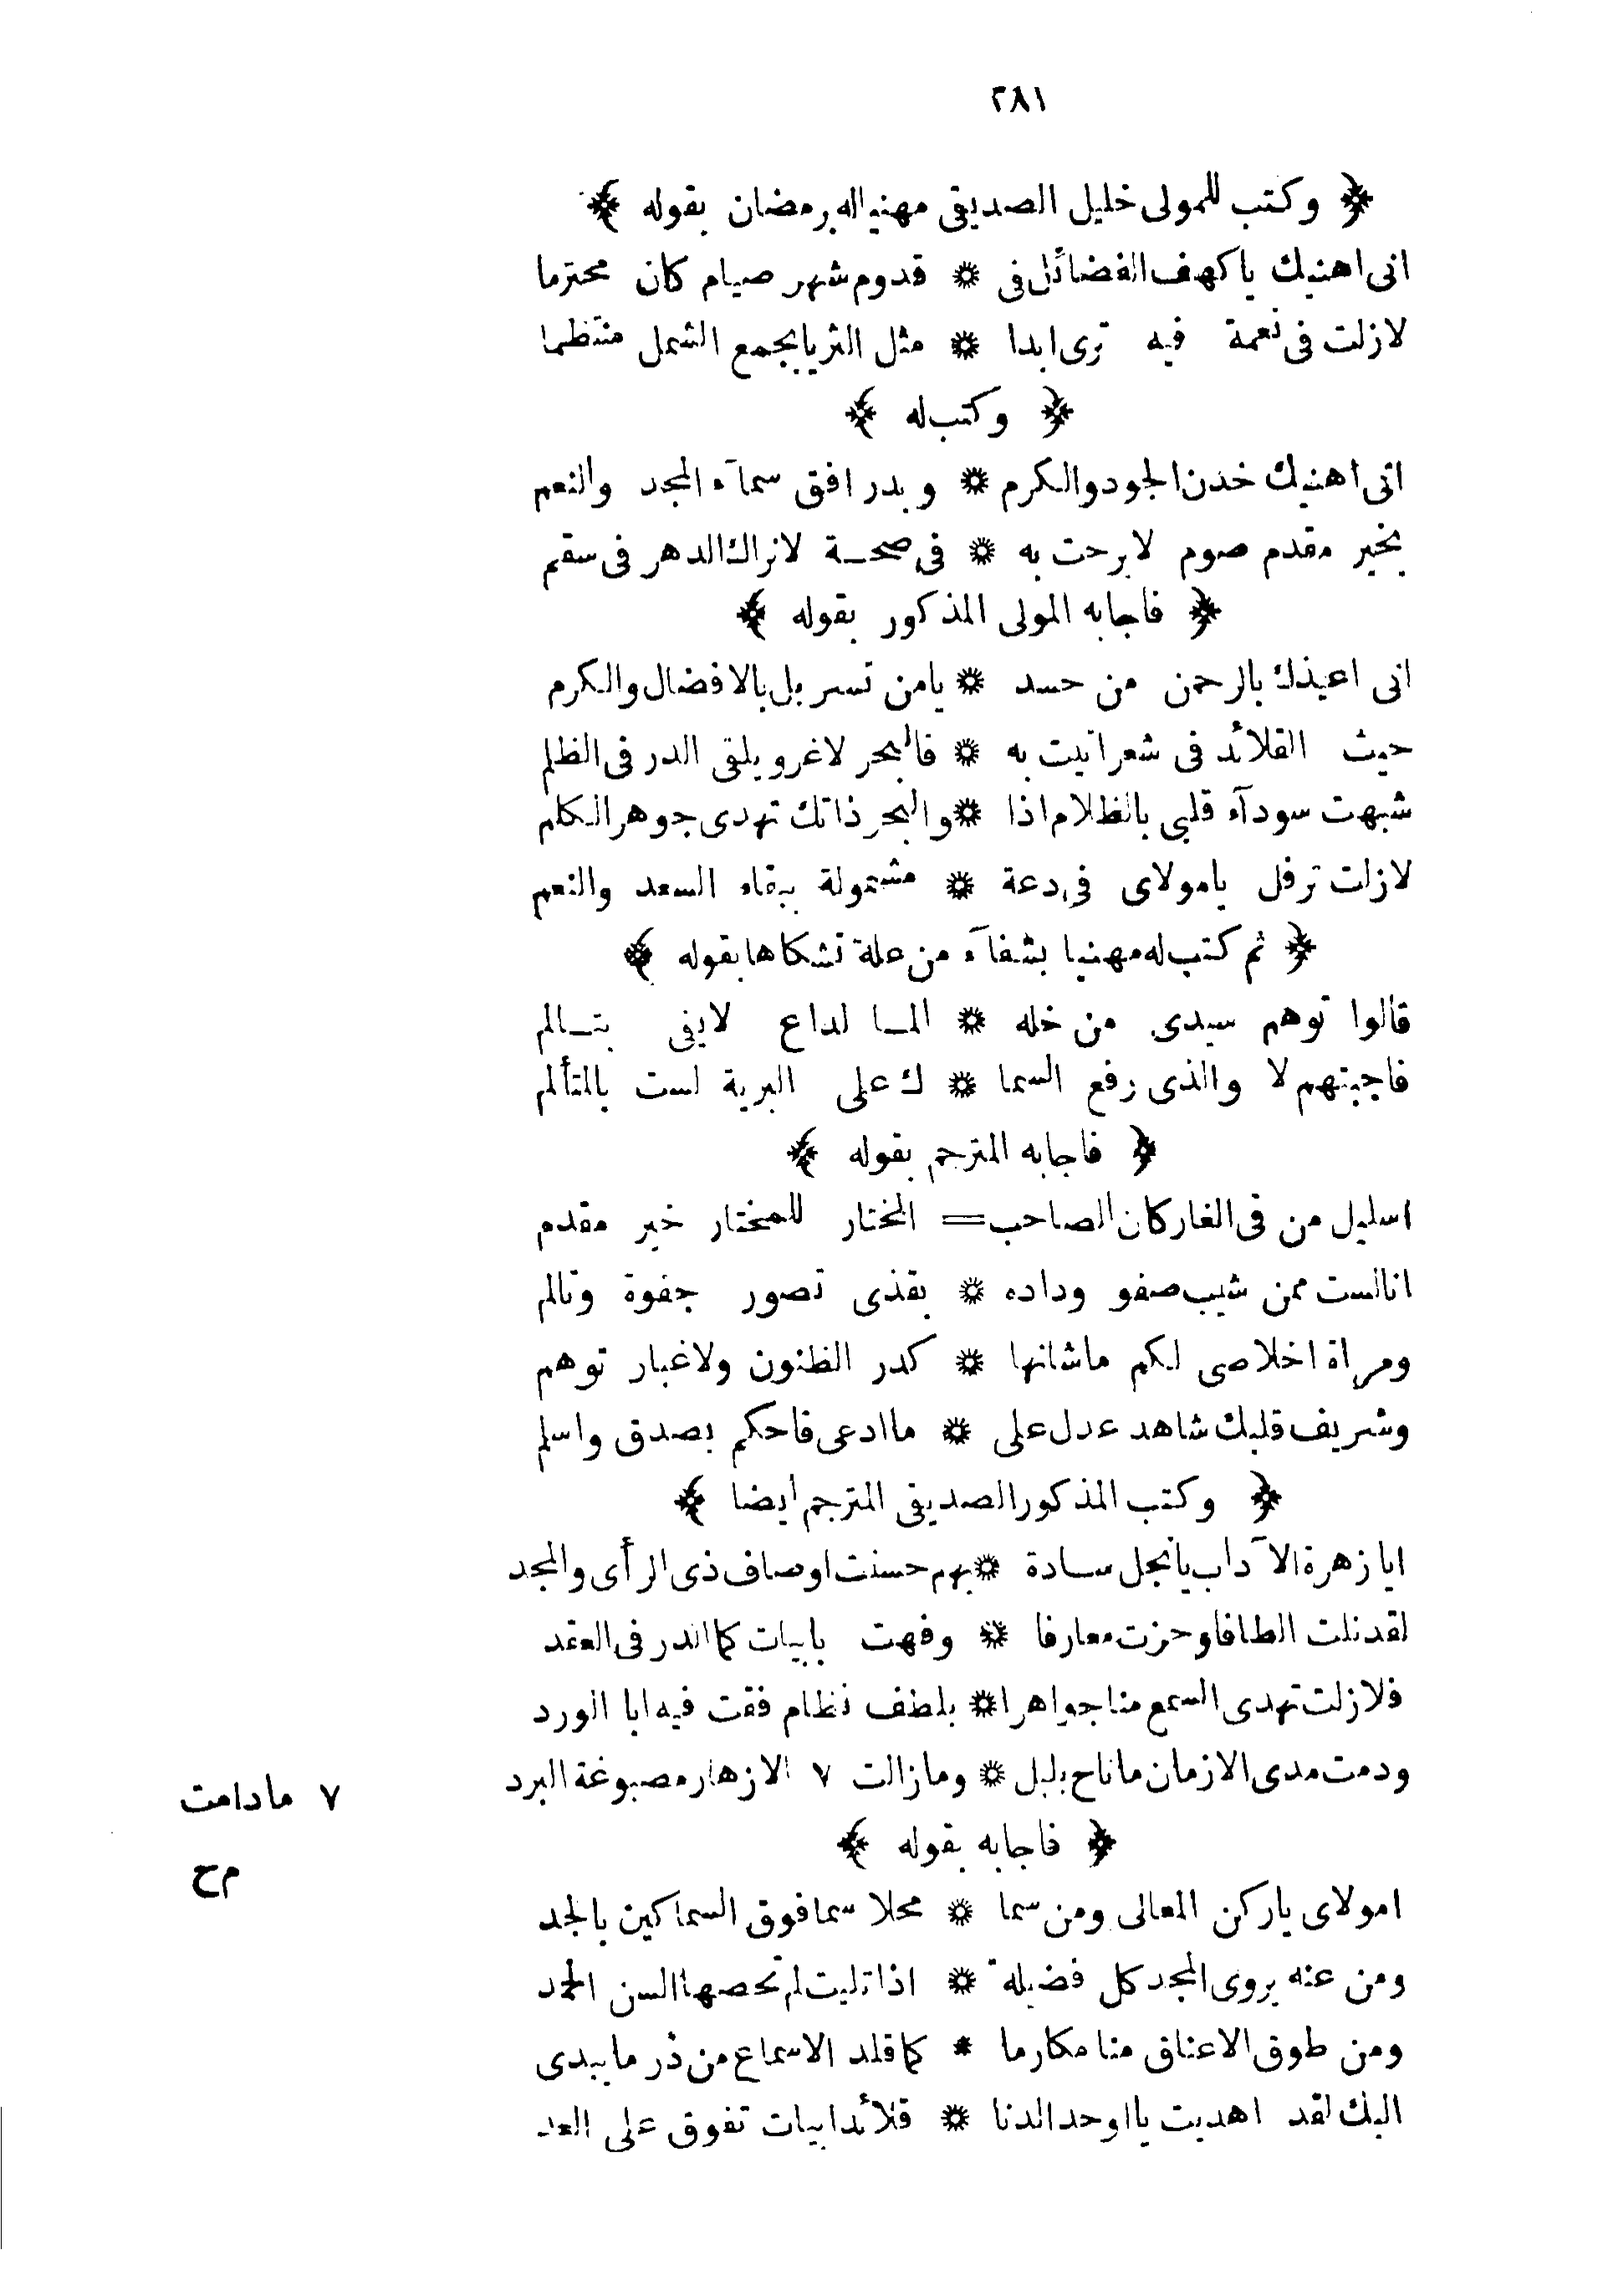 ٢٨١
﴿ وكتب للمولى خليل الصديقى مهنياله برمضان بقوله ﴾
انى اهنيك ياكهف الفضائل فى * قدوم شهر صيام كان محترما
لازلت فى نعمة فيه ترى ابدا * مثل الثريا بجمع الشمل منتظما
﴿ وكتب له ﴾
انى اهنيك خدن الجود والكرم * وبدر افق سمآء المجد والنعم
بخير مقدم صوم لابرحت به * فى صحة لانراك الدهر فى سقم
﴿ فاجابه المولى المذكور بقوله ﴾
انى اعيذك بالرحمن من حسد * يامن تسربل بالافضال والكرم
حيث القلائد فى شعر اتيت به * فالبحر لاغرو يلقى الدر فى الظلم
شبهت سودآء قلبى بالظلام اذا * والبحر ذاتك تهدى جوهر الكلم
لازلت ترفل يامولاى فى دعة * مشمولة ببقاء السعد والنعم
﴿ ثم كتب له مهنيا بشفآء من علة تشكاها بقوله ﴾
قالوا توهم سيدى من خله * المــا لداع لايفى بتــالم
فاجبتهم لا والذى رفع السما * ك على البرية لست بالمتألم
﴿ فاجابه المترجم بقوله ﴾
اسليل من فى الغار كان الصاحب = المختار للمختار خير مقدم
انالست ممن شيب صفو وداده * بقذى تصور جفوة وتالم
ومراة اخلاصى لكم ماشانها * كدر الظنون ولاغبار توهم
وشريف قلبك شاهد عدل على * ماادعى فاحكم بصدق واسلم
﴿ وكتب المذكور الصديقى المترجم ايضا ﴾
ايا زهرة الآداب يانجل ســادة * بهم حسنت اوصاف ذى الرأى والمجد
لقد نلت الطافا وحزت معارفا * وفهت بابيات كما الدر فى العقد
فلازلت تهدى السمع منا جواهرا * بلطف نظام فقت فيه ابا الورد
ودمت مدى الازمان ماناح بلبل * ومازالت ٧ الازهار مصبوغة البرد
٧ مادامت
مح
﴿ فاجابه بقوله ﴾
امولاى ياركن المعالى ومن سما * محلا سما فوق السماكين بالجد
ومن عنه يروى المجد كل فضيلة * اذا تليت لم تحصها السن الحمد
ومن طوق الاعناق منا مكارما * كما قلد الاسماع من در مايبدى
اليك لقد اهديت يااوحد الدنا * قلائد ابيات تفوق على العد